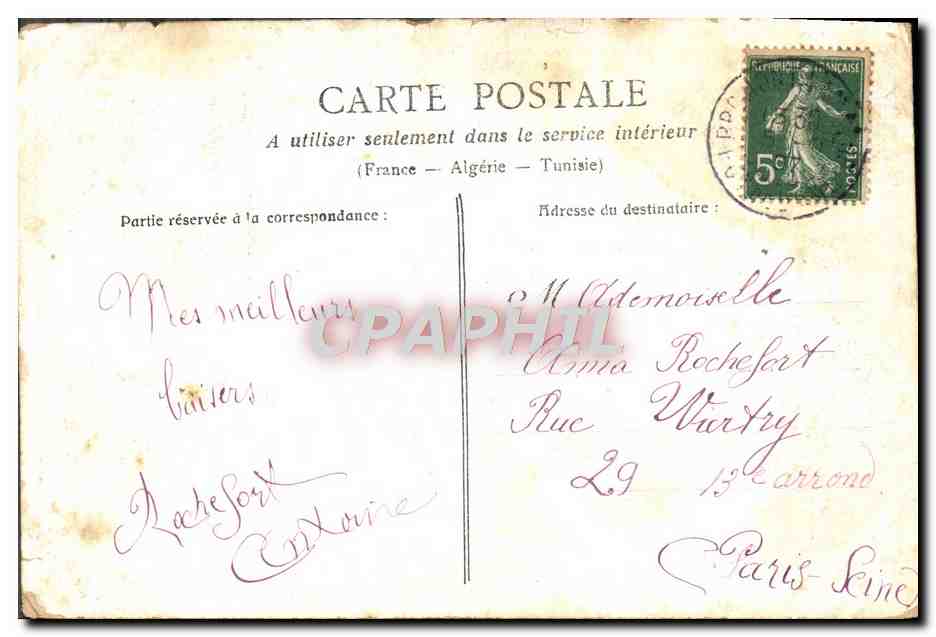 CARTE POSTALE
A utiliser seulement dans le service intérieur
(France — Algérie — Tunisie)
REPUBLIQUE FRANÇAISE
5c
POSTES
Partie réservée à la correspondance :
Mes meilleurs
baisers
Rochefort
Antoine
Adresse du destinataire :
Mademoiselle
Anna Rochefort
Rue Wurtry
29 13e arrond
Paris-Seine
CPAPHIL